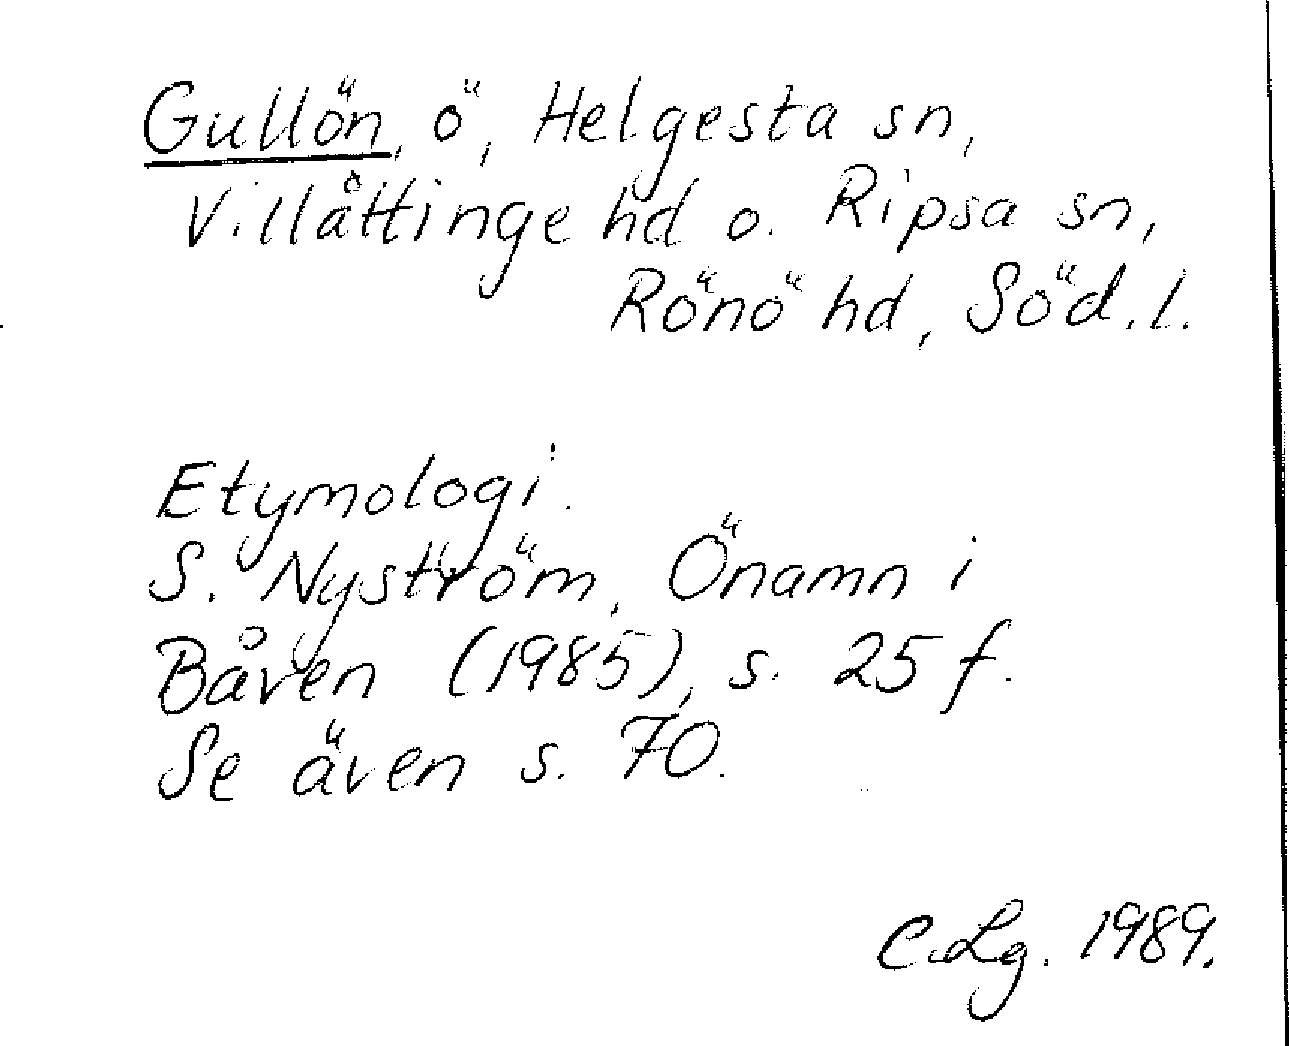 Gullön, ö, Helgesta sn,
Villåttinge hd o. Ripsa sn,
Rönö hd, Söd.l.
Etymologi.
S. Nyström, Önamn i
Båven (1985), s. 25 f.
Se även s. 70.
C.Lg. 1989.